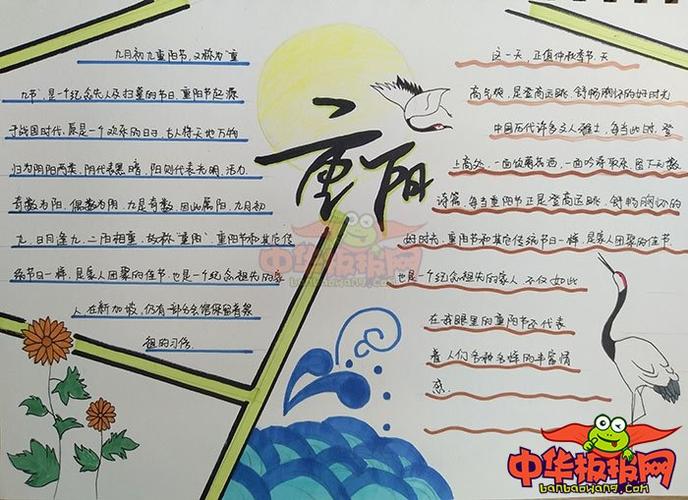 重阳
九月初九重阳节，又称为"重
九节，是一个纪念先人及扫墓的节日，重阳节起源
于战国时代，原是一个欢乐的日日，古人将天地万物
归为阴阳两类，阴代表黑暗，阳则代表光明、活力，
奇数为阳，偶数为阴，九是奇数，因此属阳，九月初
九，日月逢九，二阳相重，故称"重阳"，重阳节和其它传
统节日一样，是家人团聚的佳节，也是一个纪念祖先的家
人，在新加坡，仍有一部分会馆保留着祭
祖的习俗
这一天，正值仲秋季节，天
高气爽，是登高远眺，舒畅胸怀的好时光
中国历代许多文人雅士，每当此时，登
上高处，一面饮菊花酒，一面吟诗取乐，留下无数
诗篇，每当重阳节正是登高远眺，舒畅胸怀的
好时光，重阳节和其它传统节日一样，是家人团聚佳节
也是一个纪念祖先的家人，不仅如此
在我眼里的重阳节还代表
着人们各种各样的丰富情
感.
中华板报网
中华板报网
banbaowang.com